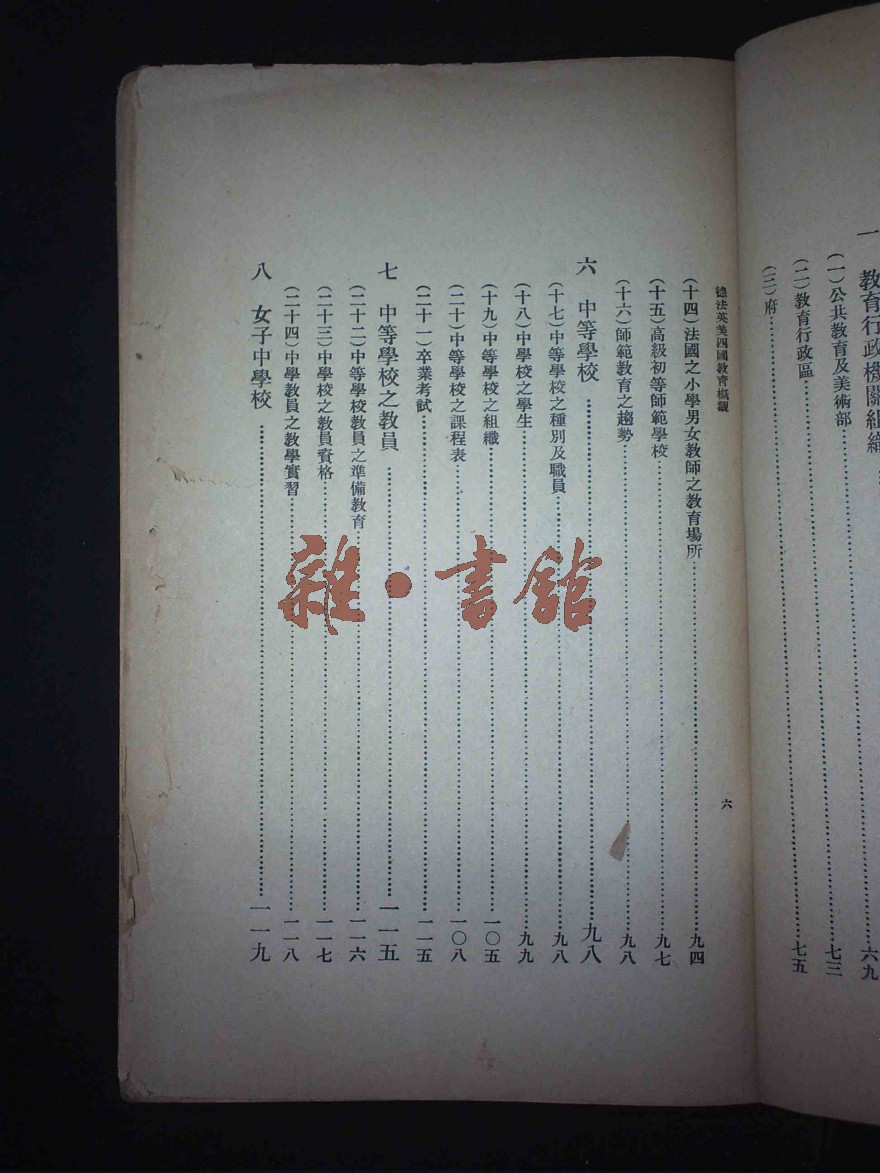 一　教育行政機關組織
六九
(一)公共教育及美術部……七三
(二)教育行政區
(三)府……七五
德法英美四國教育概觀　六
(十四)法國之小學男女教師之教育場所……九四
(十五)高級初等師範學校……九七
(十六)師範教育之趨勢……九八
六　中等學校……九八
(十七)中等學校之種別及職員……九八
(十八)中學校之學生……九九
(十九)中等學校之組織……一〇五
(二十)中等學校之課程表……一〇八
(二十一)卒業考試……一一五
七　中等學校之教員……一一五
(二十二)中等學校教員之準備教育……一一六
(二十三)中學校之教員資格……一一七
(二十四)中學教員之教學實習……一一八
八　女子中學校……一一九
雜·書館